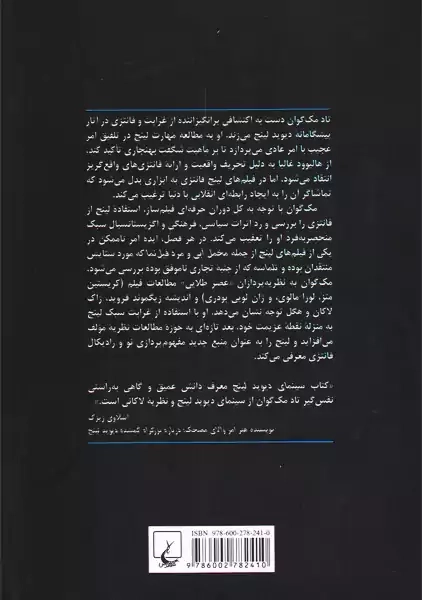 تاد مک‌گوان دست به اکتشافی برانگیزاننده از غرابت و فانتزی در آثار
پیشگامانه دیوید لینچ می‌زند. او به مطالعه مهارت لینچ در تلفیق امر
عجیب با امر عادی می‌پردازد تا بر ماهیت شگفت بهنجاری تأکید کند.
از هالیوود غالبا به دلیل تحریف واقعیت و ارایة فانتزی‌های واقع‌گریز
انتقاد می‌شود، اما در فیلم‌های لینچ فانتزی به ابزاری بدل می‌شود که
تماشاگران را به ایجاد رابطه‌ای انقلابی با دنیا ترغیب می‌کند.
مک‌گوان با توجه به کل دوران حرفه‌ای فیلم‌ساز، استفاده لینچ از
فانتزی را بررسی و رد اثرات سیاسی، فرهنگی و اگزیستانسیال سبک
منحصربه‌فرد او را تعقیب می‌کند. در هر فصل، ایده امر ناممکن در
یکی از فیلم‌های لینچ از جمله مخمل آبی و مرد فیل‌نما که مورد ستایس
منتقدان بوده و تلماسه که از جنبه تجاری ناموفق بوده بررسی می‌شود.
مک‌گوان به نظریه‌پردازان «عصر طلایی» مطالعات فیلم (کریستین
متز، لورا مالوی، و ژان لویی بودری) و اندیشه زیگموند فروید، ژاک
لاکان و هگل توجه نشان می‌دهد. او با استفاده از غرابت سبک لینچ
به منزله نقطه عزیمت خود، بعد تازه‌ای به حوزه مطالعات نظریه مؤلف
می‌افزاید و لینچ را به عنوان منبع جدید مفهوم‌پردازی نو و رادیکال
فانتزی معرفی می‌کند.
«کتاب سینمای دیوید لینچ معرف دانش عمیق و گاهی به‌راستی
نفس‌گیر تاد مک‌گوان از سینمای دیوید لینچ و نظریه لاکانی است.»
اسلاوی ژیژک
نویسنده هنر امر والای مضحک: درباره بزرگراه گمشده دیوید لینچ
ISBN: 978-600-278-241-0
9 786002 782410